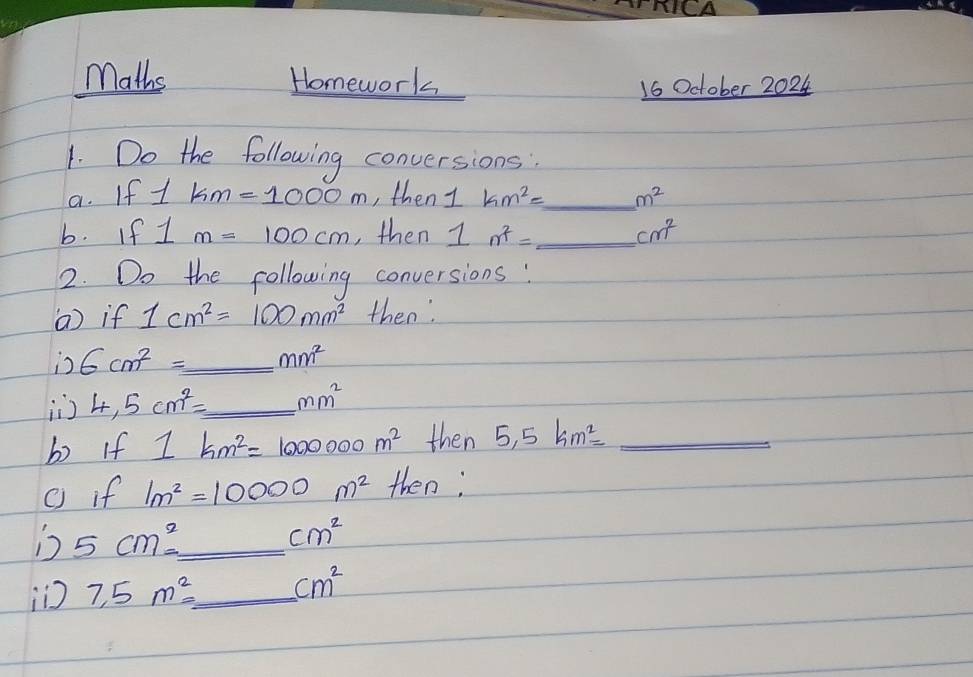 AFRICA
Maths Homework 16 October 2024
1. Do the following conversions:
a. If 1 km = 1000 m, then 1 km² = ______ m²
b. If 1 m = 100 cm, then 1 m² = ______ cm²
2. Do the following conversions:
a) if 1 cm² = 100 mm² then:
i) 6 cm² = ______ mm²
ii) 4,5 cm² = ______ mm²
b) If 1 km² = 1000000 m² then 5,5 km² = ______
c) if 1m² = 10000 m² then:
i) 5 cm² = ______ cm²
ii) 7,5 m² = ______ cm²